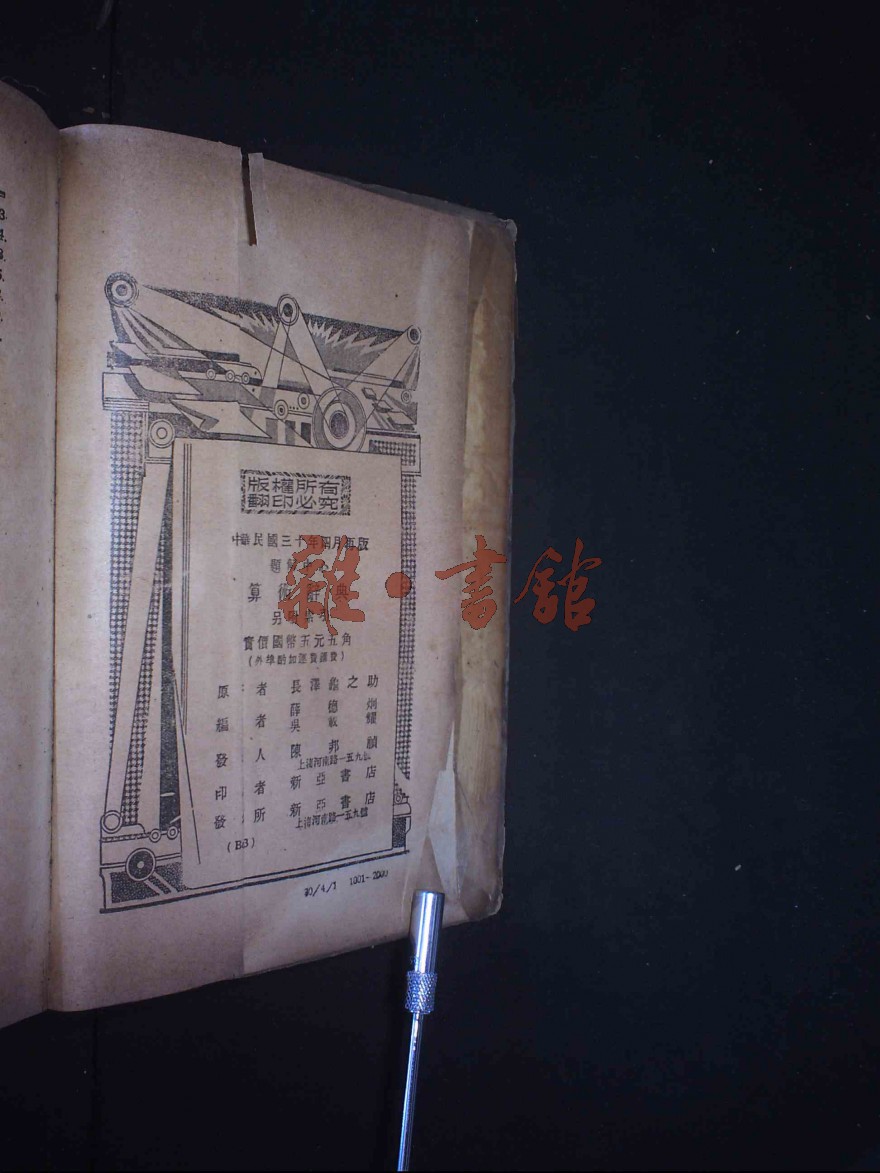 版權所有
翻印必究
中華民國三十年四月再版
題解中心
算術辭典
實價國幣五元五角
(外埠酌加運費匯費)
原 者 長澤龜之助
編 者 薛德炯
吳載耀
發 人 陳邦禎
上海河南路一五九號
印 者 新亞書店
發 所 新亞書店
上海河南路一五九號
(B3)
30/4/1 1001-2000
雜·書館
3.
4.